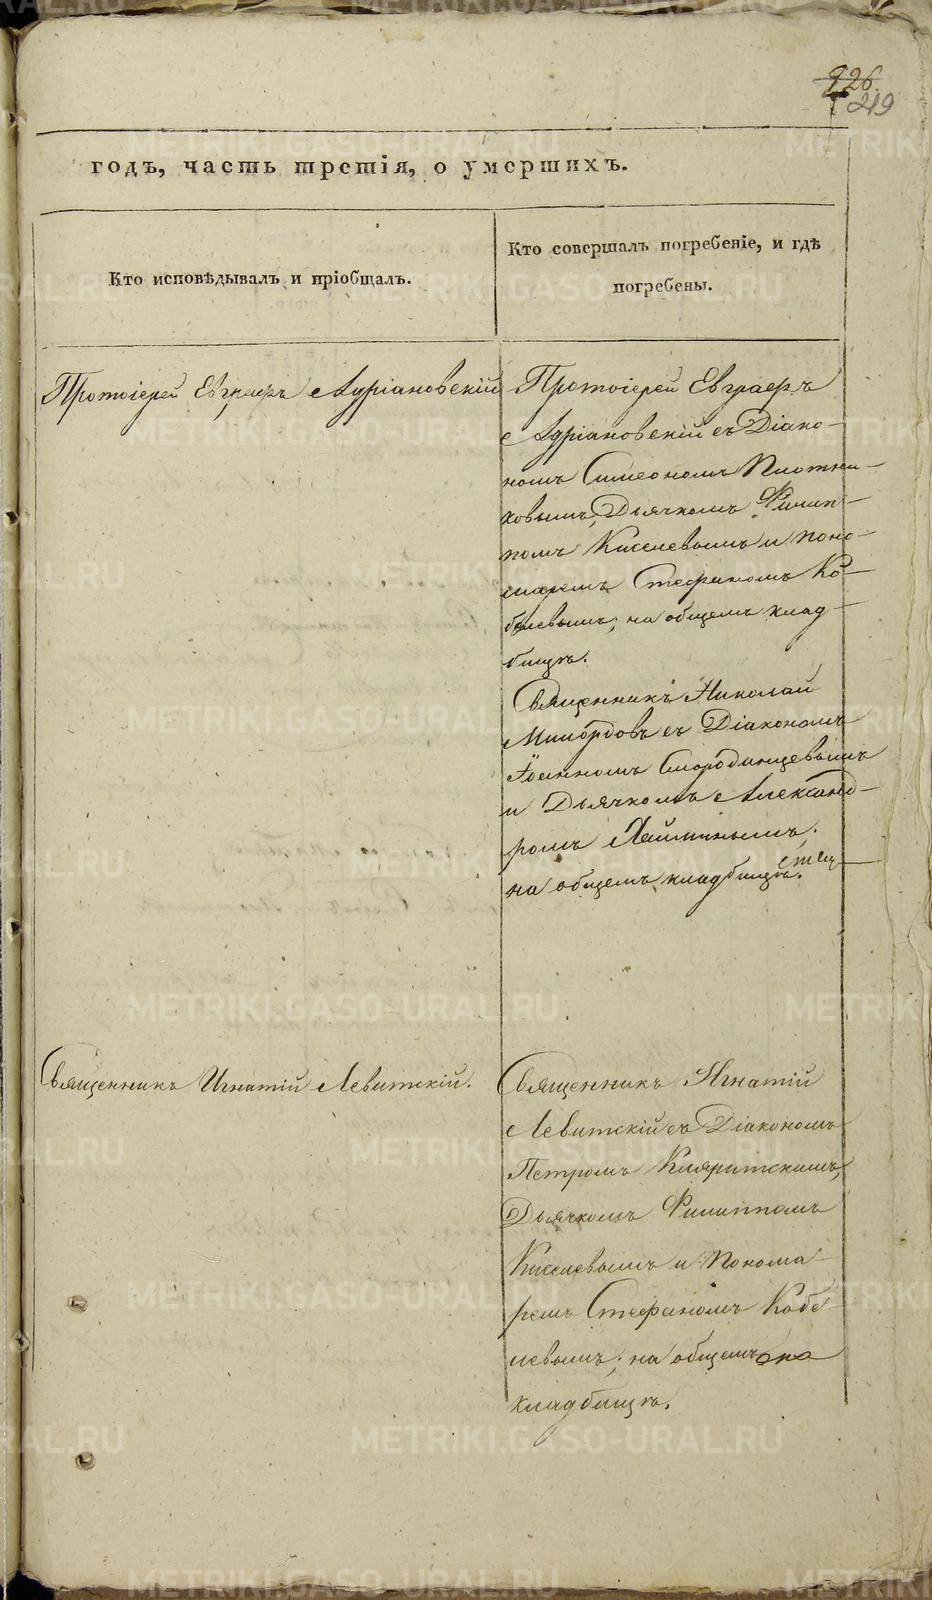 226
219
годъ, часть третія, о умершихъ.
Кто исповѣдывалъ и пріобщалъ.
Кто совершалъ погребеніе, и гдѣ
погребены.
Протоіерей Евграфъ Адріановскій
Протоіерей Евграфъ
Адріановскій съ Діако-
номъ Симеономъ Плотни-
ковымъ, Дьячкомъ Филип-
помъ Киселевымъ и поно-
маремъ Стефаномъ Ко-
белевымъ; на общемъ клад-
бищѣ.
Священникъ Николай
съ Діакономъ
Іоанномъ Смородинцевымъ
и Дьячкомъ Александ-
ромъ
на общемъ кладбищѣ.
Священникъ Игнатій Левитскій.
Священникъ Игнатій
Левитскій съ Діакономъ
Петромъ
Дьячкомъ Филиппомъ
Киселевымъ и Понома-
ремъ Стефаномъ Кобе-
левымъ; на общемъ
кладбищѣ.
METRIKI.GASO-URAL.RU